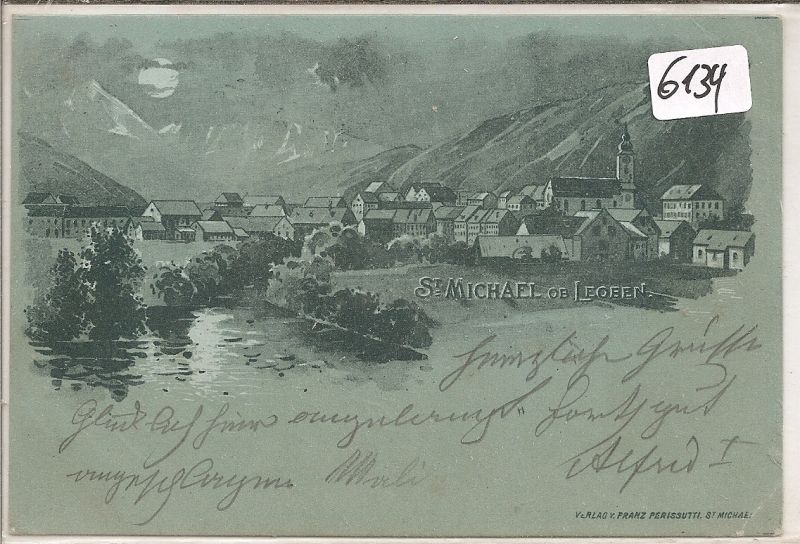 6134
ST MICHAEL OB LEOBEN.
Herzliche Grüße
Glücklich hier angelangt, Kraft gut
angeschlagen Mali Alfred I
VERLAG V. FRANZ PERISSUTTI, ST MICHAEL